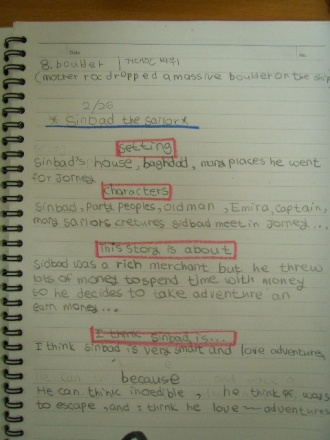 Date
No.
8. boulder 거대한 바위
(mother roc dropped a massive boulder on the ship
2/26
* Sinbad the sailor *
setting
Sinbad's house, baghdad, many places he went
for Jorney
characters
Sinbad, Party peoples, old man, Emira, captain,
many sailors cretures sidbad meet in Jorney...
This story is about
Sidbad was a rich merchant but he threw
lots of money to spend time with money
so he decides to take adventure an
earn money...
I think sinbad is...
I think sinbad is very smart and love adventures,
because
He can thinc incredible, he think of ways
to escape, and I think he love adventures